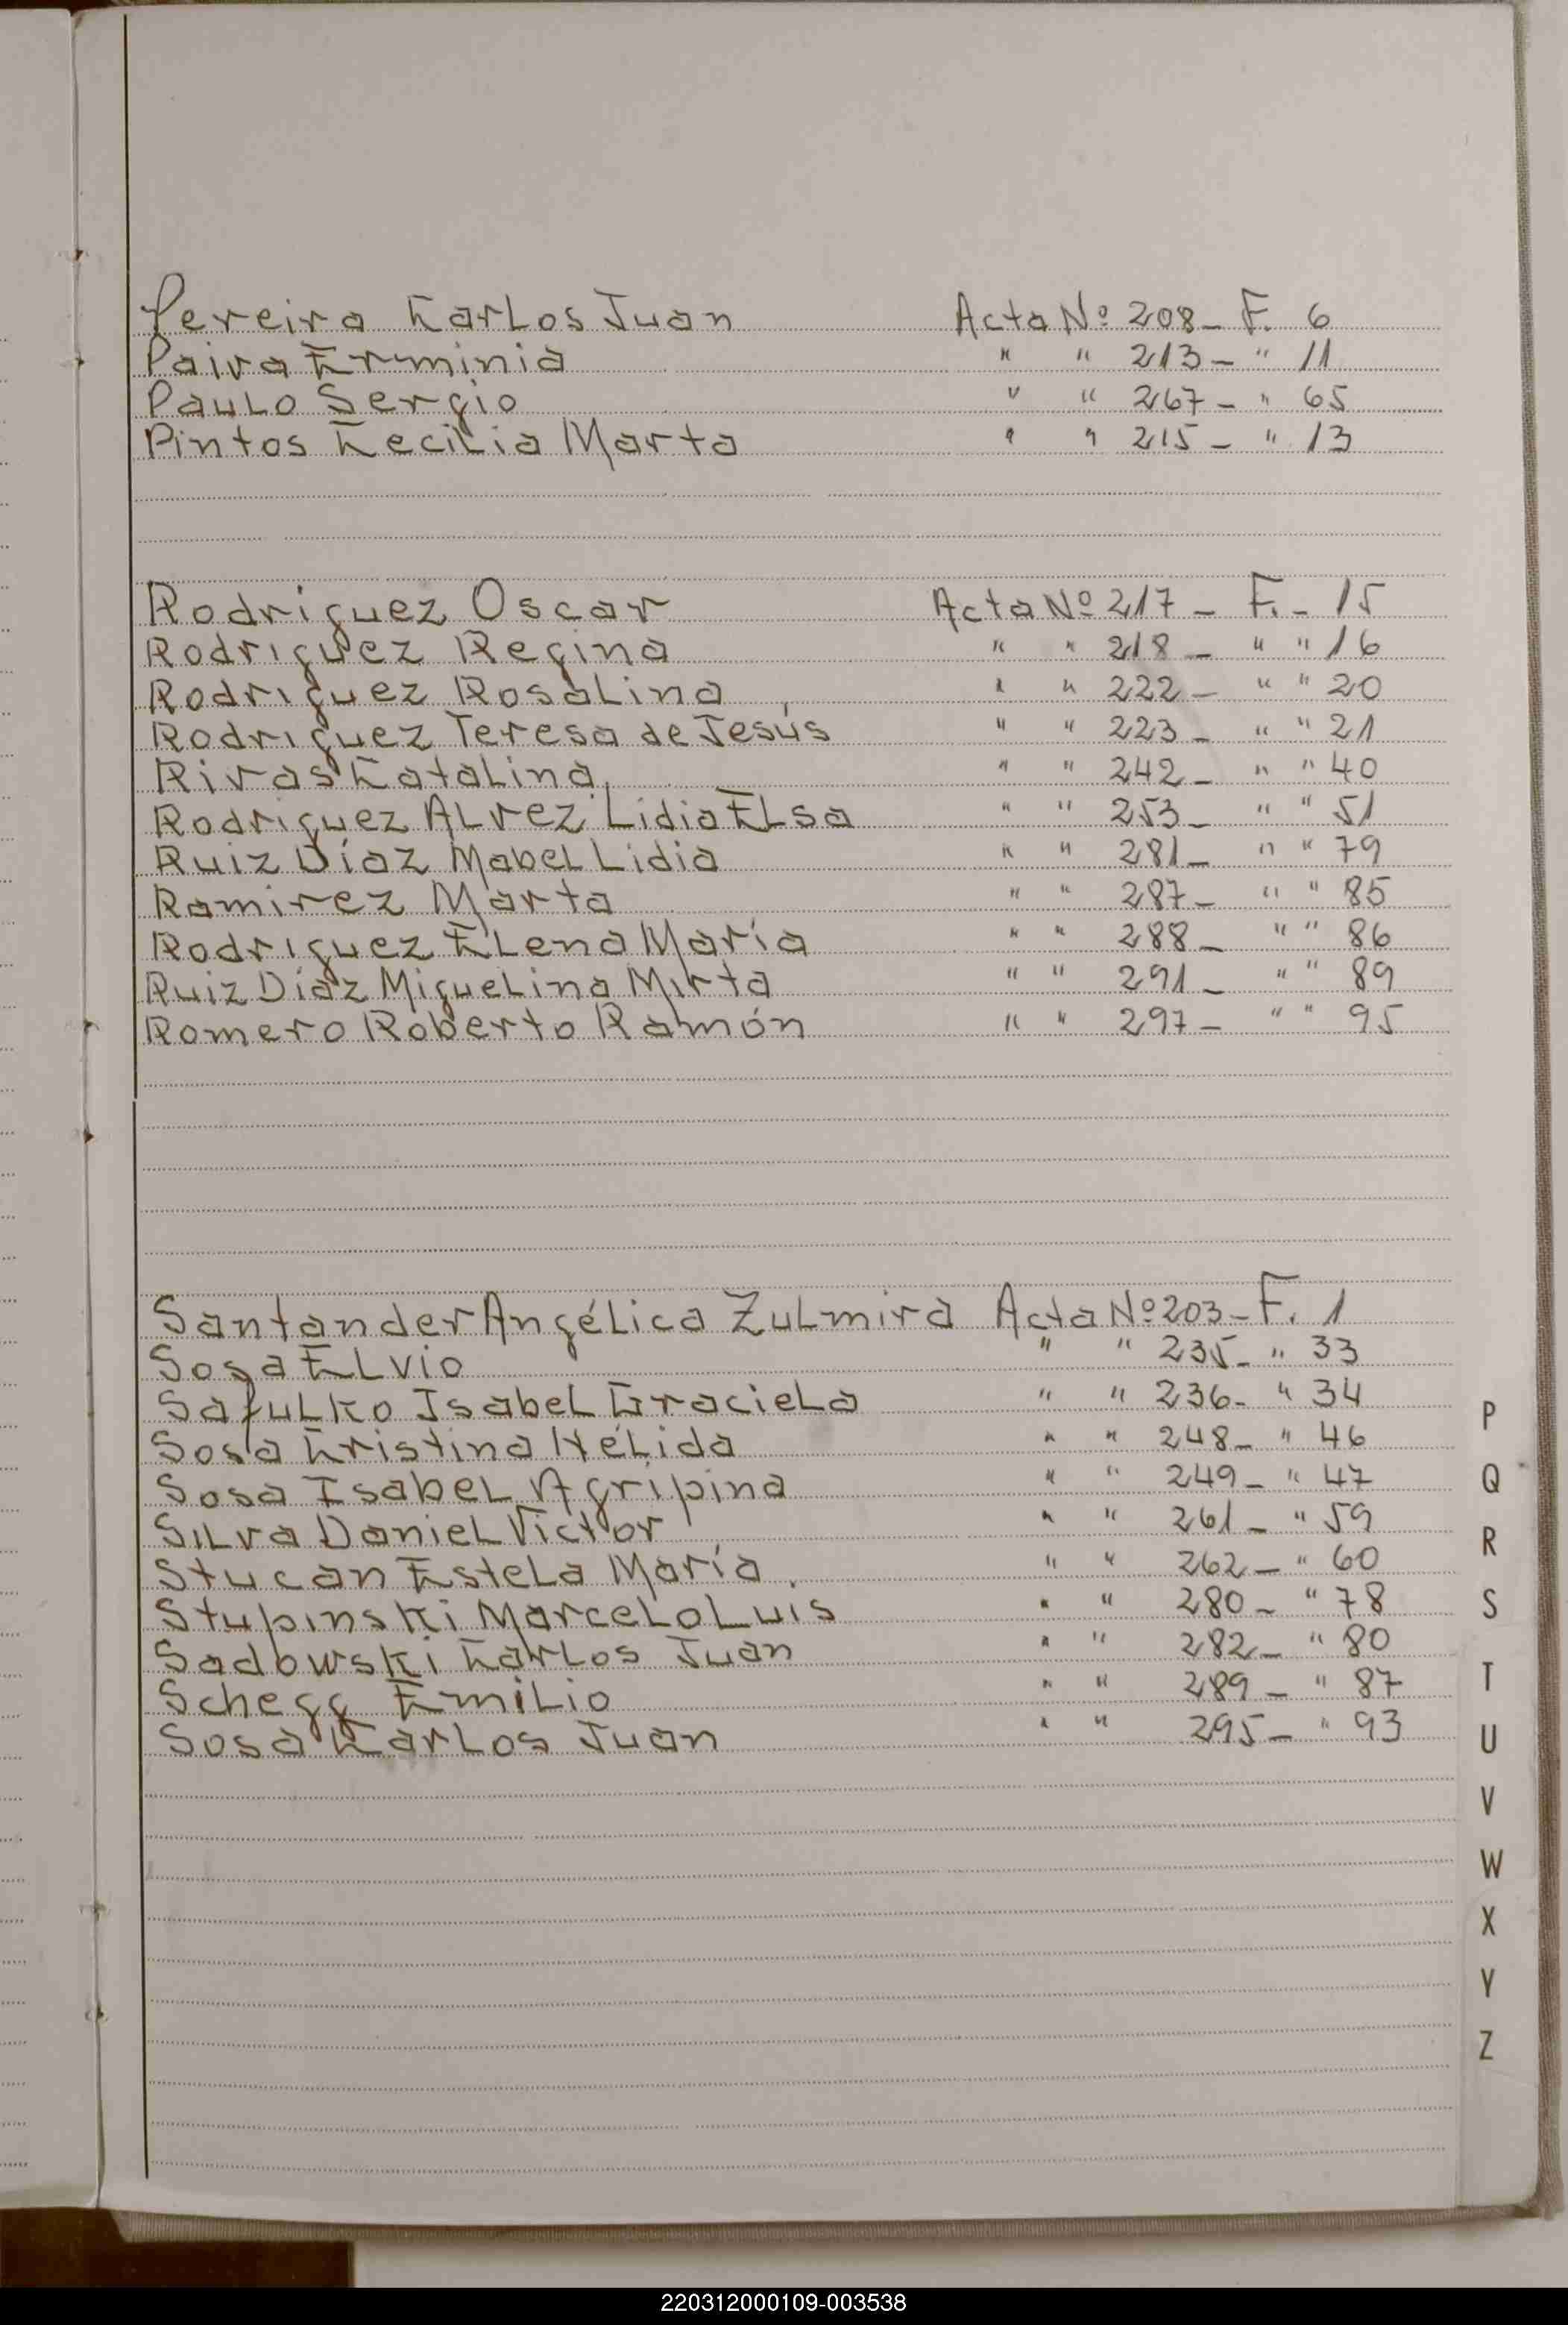 Pereira Carlos Juan Acta Nº 208 - F. 6
Paiva Erminia " " 213 - " 11
Paulo Sergio " " 267 - " 65
Pintos Cecilia Marta " " 215 - " 13
Rodriguez Oscar Acta Nº 217 - F. - 15
Rodriguez Regina " " 218 - " " 16
Rodriguez Rosalina " " 222 - " " 20
Rodriguez Teresa de Jesús " " 223 - " " 21
Rivas Catalina " " 242 - " " 40
Rodriguez Alvez Lidia Elsa " " 253 - " " 51
Ruiz Díaz Mabel Lidia " " 281 - " " 79
Ramirez Marta " " 287 - " " 85
Rodriguez Elena María " " 288 - " " 86
Ruiz Díaz Miguelina Mirta " " 291 - " " 89
Romero Roberto Ramón " " 297 - " " 95
Santander Angélica Zulmira Acta Nº 203 - F. 1
Sosa Elvio " " 235 - " 33
Safulko Isabel Graciela " " 236 - " 34
P
Sosa Cristina Nélida " " 248 - " 46
Sosa Isabel Agripina " " 249 - " 47
Q
Silva Daniel Victor " " 261 - " 59
R
Stucan Estela María. " " 262 - " 60
Stupinski Marcelo Luis " " 280 - " 78
S
Sadowski Carlos Juan " " 282 - " 80
Schegg Emilio " " 289 - " 87
T
Sosa Carlos Juan " " 295 - " 93
U
V
W
X
Y
Z
220312000109-003538